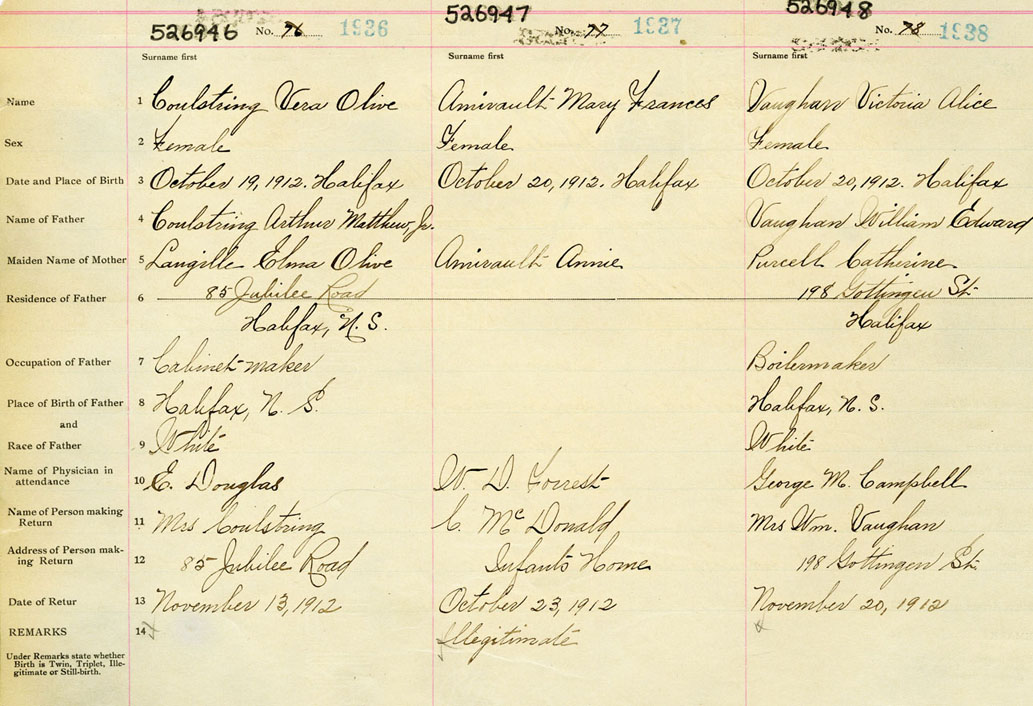 526946 No. 76 1936
526947 No. 77 1937
526948 No. 78 1938
Surname first Surname first Surname first
Name 1 Coulstring Vera Olive Amirault Mary Frances Vaughan Victoria Alice
Sex 2 Female Female Female
Date and Place of Birth 3 October 19, 1912. Halifax October 20, 1912. Halifax October 20, 1912. Halifax
Name of Father 4 Coulstring Arthur Matthew, Jr. Vaughan William Edward
Maiden Name of Mother 5 Langille Elma Olive Amirault Annie Purcell Catherine
Residence of Father 6 85 Jubilee Road 198 Gottingen St.
Halifax, N.S. Halifax
Occupation of Father 7 Cabinet-maker Boilermaker
Place of Birth of Father 8 Halifax, N. S. Halifax, N.S.
and
Race of Father 9 White White
Name of Physician in
attendance 10 E. Douglas W. D. Forrest George M. Campbell
Name of Person making
Return 11 Mrs Coulstring C. McDonald Mrs Wm. Vaughan
Address of Person mak-
ing Return 12 85 Jubilee Road Infants Home 198 Gottingen St.
Date of Retur 13 November 13, 1912 October 23, 1912 November 20, 1912
REMARKS 14 Illegitimate
Under Remarks state whether
Birth is Twin, Triplet, Ille-
gitimate or Still-birth.